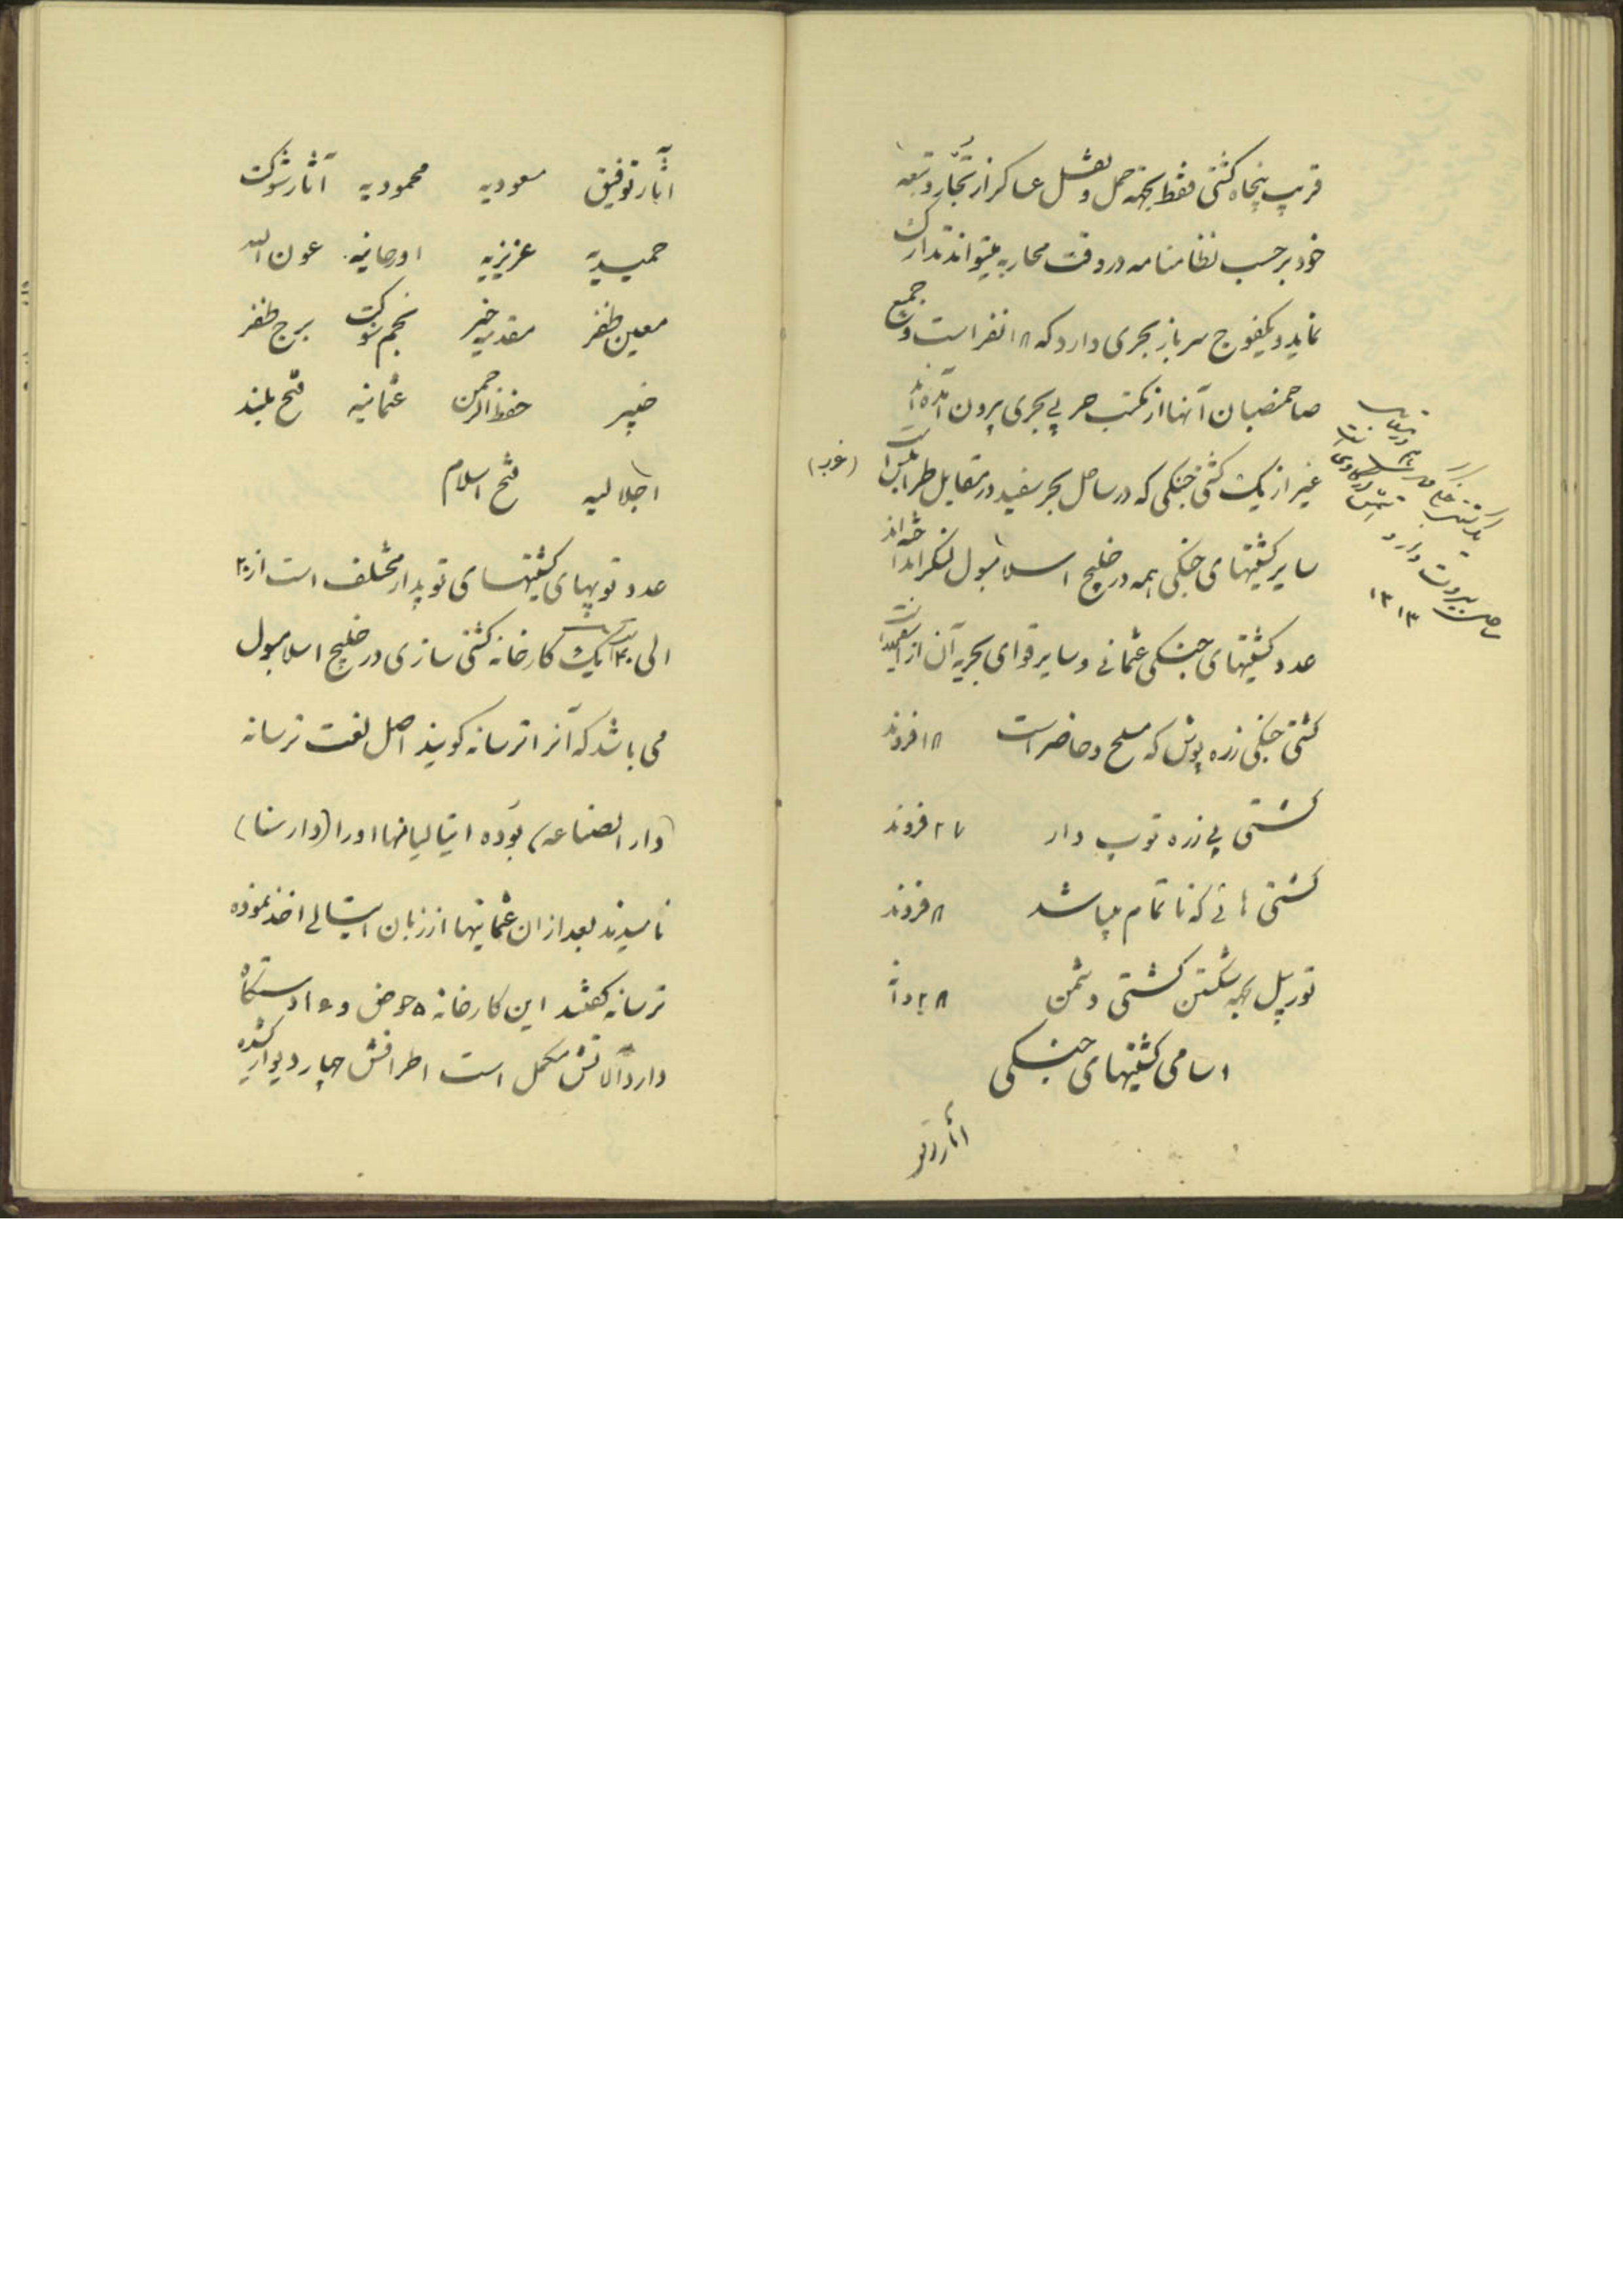 قریب پنجاه کشتی فقط بجهة حمل و نقل عساکر از تجّار و تبعهٔ
خود بر حسب نظامنامه در وقت محاربه میتواند تدارک
نماید و یکفوج سرباز بحری دارد که ۱۸ نفر است و جمیع
صاحمنصبان آنها از مکتب حربی بحری بیرون آمده‌اند
غیر از یک کشتی جنکی که در ساحل بحر سفید در مقابل طرابلس (غرب) است
سایر کشتیهای جنکی همه در خلیج اسلامبول لنکر انداخته‌اند
عدد کشتیهای جنکی عثمانی و سایر قوای بحریه آن از اینقرار است
کشتی جنکی زره پوش که مسلح و حاضر است ۱۸ فروند
کشتی بی زره توپ دار ۲۷ فروند
کشتی هائی که ناتمام میباشد ۸ فروند
تورپیل بجهة شکستن کشتی دشمن ۲۸
اسامی کشتیهای جنکی
آثار توفیق
ساحل بیروت دارد
۱۳۱۳
آثار توفیق مسعودیه محمودیه آثار شوکت
حمیدیه عزیزیه اورخانیه عون الله
معین ظفر مقدمه خیر نجم شوکت برج ظفر
خیبر حفظ الرحمن عثمانیه فتح بلند
اجلالیه فتح اسلام
عدد توپهای کشتیهای توپدار مختلف است از ۲
الی ۲۰ است یک کارخانه کشتی سازی در خلیج اسلامبول
می باشد که آنرا ترسانه کویند اصل لغت ترسانه
(دار الصناعه) بوده ایتالیانها اورا (دارسنا)
نامیدند بعد از ان عثمانیها از زبان ایتالی اخذ نموده
ترسانه کفتند این کارخانه ۵ حوض و ۱۶ دستکاه
دارد آلاتش مکمل است اطرافش چهار دیوار کشیده